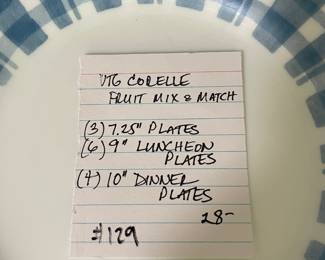 VTG CORELLE
FRUIT MIX & MATCH
(3) 7.25" PLATES
(6) 9" LUNCHEON
PLATES
(4) 10" DINNER
PLATES
28-
#129